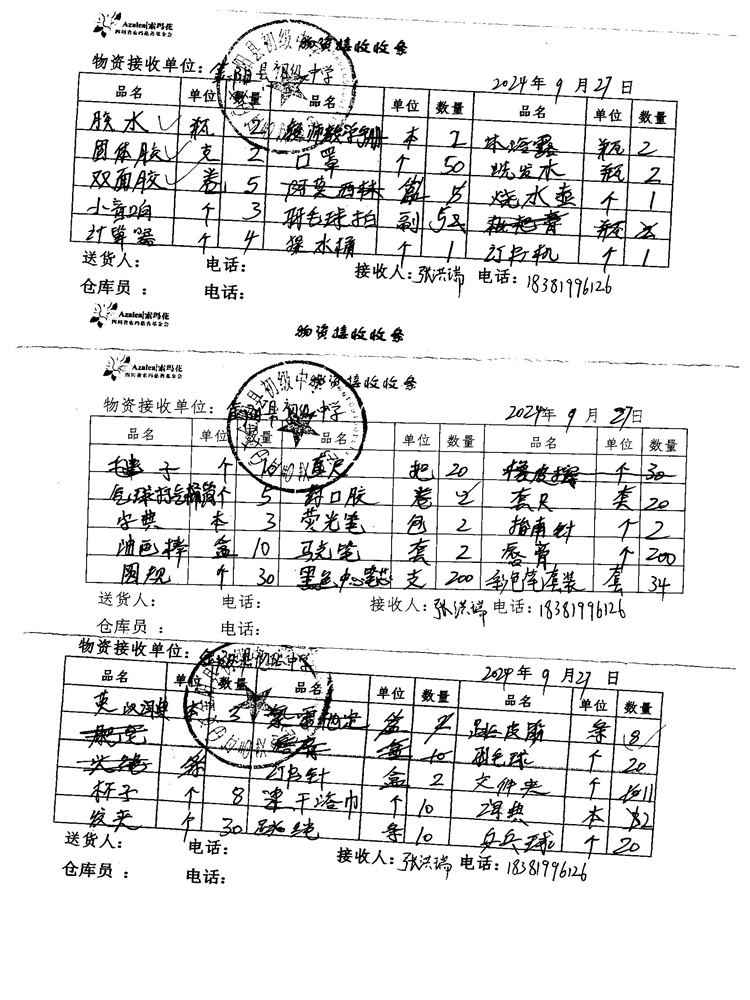 Azalea|索玛花
四川省索玛慈善基金会
物资接收收条
物资接收单位：金阳县初级中学 2024年9月27日
品名 单位 数量 品名 单位 数量 品名 单位 数量
胶水 瓶 2 本 2 瓶 2
固体胶 支 2 口罩 个 50 洗发水 瓶 2
双面胶 卷 5 阿莫西林 盒 5 烧水壶 个 1
小音响 个 3 羽毛球拍 副 5 枇杷膏 瓶
计算器 个 4 水桶 个 1 打印机 个 1
送货人： 电话： 接收人：张洪瑞 电话：18381996126
仓库员： 电话：
Azalea|索玛花
四川省索玛慈善基金会
物资接收收条
Azalea|索玛花
四川省索玛慈善基金会
物资接收收条
物资接收单位：金阳县初级中学 2024年9月27日
品名 单位 数量 品名 单位 数量 品名 单位 数量
毽子 个 10 直尺 把 20 橡皮擦 个 30
气球打气筒 个 5 封口胶 卷 2 套尺 套 20
字典 本 3 荧光笔 包 2 指南针 个 2
油画棒 盒 10 马克笔 套 2 唇膏 个 200
圆规 个 30 黑色中心笔芯 支 200 彩色笔套装 套 34
送货人： 电话： 接收人：张洪瑞 电话：18381996126
仓库员： 电话：
物资接收单位：金阳县初级中学 2024年9月27日
品名 单位 数量 品名 单位 数量 品名 单位 数量
英汉词典 本 3 盒 跳皮筋 条 8
10 羽毛球 个 20
订书针 盒 2 文件夹 个 11
杯子 个 8 洗干浴巾 个 10 本
发夹 个 30 跳绳 条 10 乒乓球 个 20
送货人： 电话： 接收人：张洪瑞 电话：18381996126
仓库员： 电话：